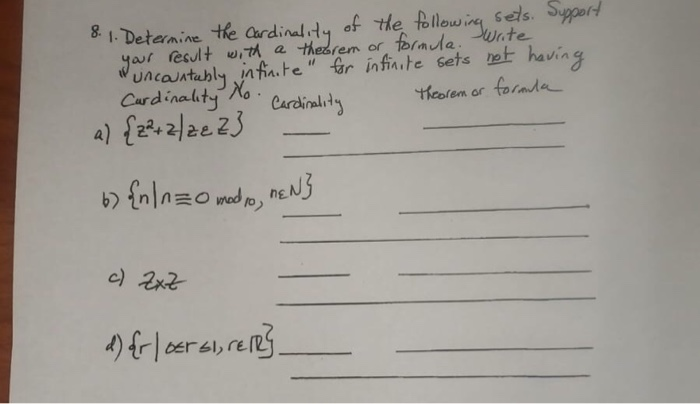 8. 1. Determine the Cardinality of the following sets. Support
your result with a theorem or formula. Write
"uncountably infinite" for infinite sets not having
Cardinality ℵo. Cardinality Theorem or formula
a) {z²+2|z∈Z}
b) {n|n≡0 mod 10, n∈N}
c) Z×Z
d) {r|0≤r≤1, r∈R}